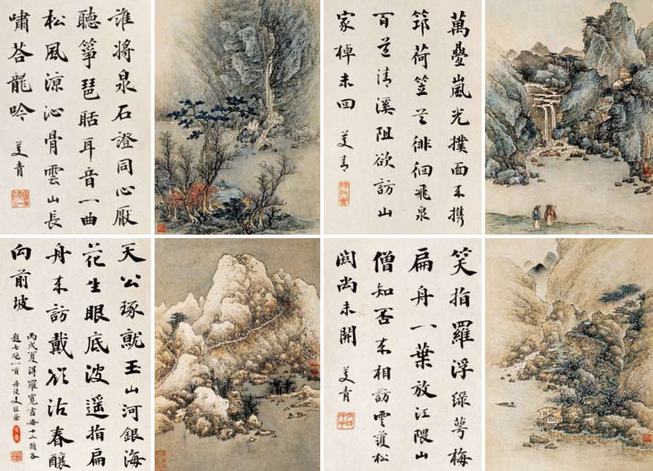 誰將泉石證同心厭
聽箏琶聒耳音一曲
松風涼沁骨雲山長
嘯荅龍吟
美青
萬疊嵐光撲面來攜
筇荷笠共徘徊飛泉
百道清溪阻欲訪山
家棹未回
美青
天公琢就玉山河銀海
花生眼底波遙指扁
舟來訪戴欲沽春釀
向前坡
丙戌夏得羅寬畫冊十二頁各
題七絕一首
笑指羅浮綠萼梅
扁舟一葉放江隈山
僧知否來相訪雲護松
關尚未開
美青